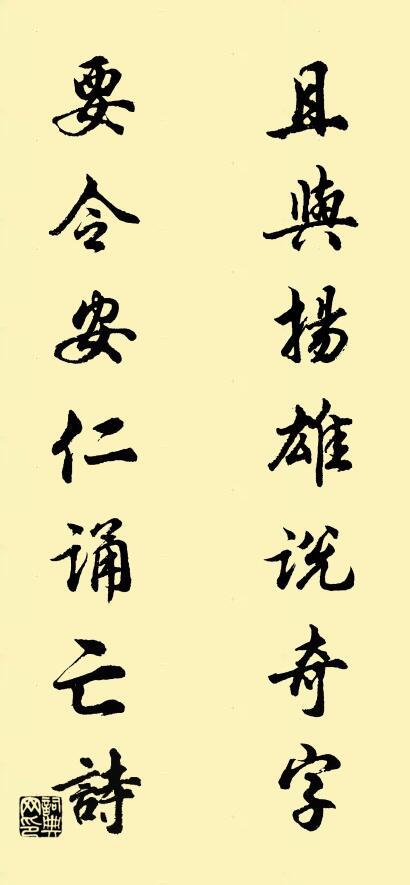 且與揚雄説奇字
要令安仁誦亡詩
詞典网印